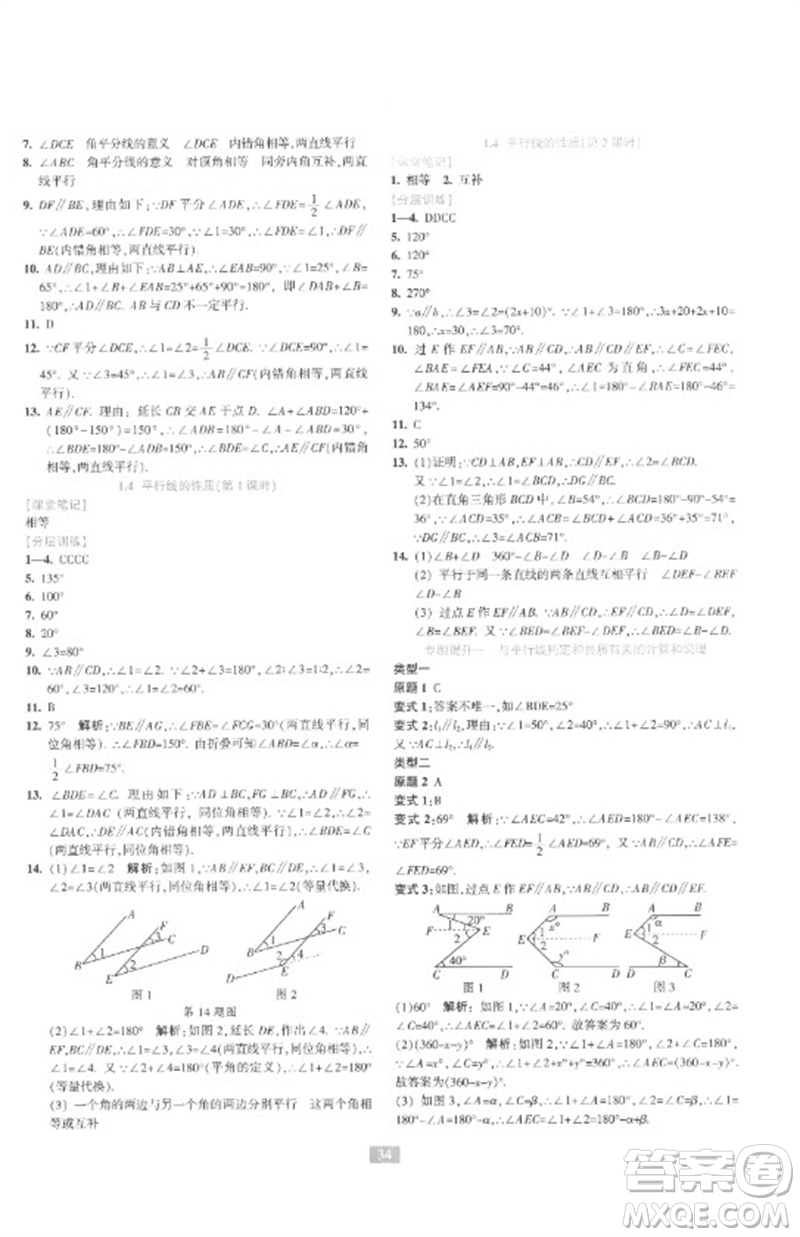 7. ∠DCE 角平分线的意义 ∠DCE 内错角相等,两直线平行
8. ∠ABC 角平分线的意义 对顶角相等 同旁内角互补,两直
线平行
9. DF∥BE,理由如下:∵DF平分∠ADE,∴∠FDE=1/2∠ADE,
∵∠ADE=60°,∴∠FDE=30°,∵∠1=30°,∴∠FDE=∠1,∴DF∥
BE(内错角相等,两直线平行)
10. AD∥BC,理由如下:∵AB⊥AE,∴∠EAB=90°,∵∠1=25°,∠B=
65°,∴∠1+∠EAB+∠B=25°+90°+65°=180°,即∠DAB+∠B=
180°,∴AD∥BC. AB与CD不一定平行.
11. D
12. ∵CF平分∠DCE,∴∠1=∠2=1/2∠DCE,∵∠DCE=90°,∴∠1=
45°. 又∵∠3=45°,∴∠1=∠3,∴AB∥CF(内错角相等,两直线平
行).
13. AE∥CF. 理由:延长CB交AE于点D. ∠A+∠ABD=120°+
(180°-150°)=150°,∴∠ADB=180°-(∠A+∠ABD)=30°,
∴∠BDE=180°-∠ADB=150°,∴∠BDE=∠C,∴AE∥CF(内错角
相等,两直线平行).
1.4 平行线的性质(第1课时)
[课堂笔记]
相等
[分层训练]
1—4. CCCC
5. 135°
6. 100°
7. 60°
8. 20°
9. ∠3=80°
10. ∵AB∥CD,∴∠1=∠2. ∵∠2+∠3=180°,∠2∶∠3=1∶2,∴∠2=
60°,∴∠1=60°.
11. B
12. 75° 解析:∵BE∥AG,∴∠FBE=∠FCG=30°(两直线平行,同
位角相等). ∴∠FBD=150°. 由折叠可知∠ABD=∠α,∴∠α=
1/2∠FBD=75°.
13. ∠BDE=∠C. 理由如下:∵AD⊥BC,FG⊥BC,∴AD∥FG,
∴∠1=∠DAC(两直线平行,同位角相等). 又∵∠1=∠2,∴∠2=
∠DAC,∴DE∥AC(内错角相等,两直线平行),∴∠BDE=∠C
(两直线平行,同位角相等).
14. (1)∠1=∠2 解析:如图1,∵AB∥EF,BC∥DE,∴∠1=∠3,
∠2=∠3(两直线平行,同位角相等),∴∠1=∠2(等量代换).
A F B 1 3 C E 2 D
图1
A F B 1 3 C D 2 E 4
图2
第14题图
(2)∠1+∠2=180° 解析:如图2,延长DE,作出∠4. ∵AB∥
EF,BC∥DE,∴∠1=∠3,∠3=∠4(两直线平行,同位角相等),
∴∠1=∠4. ∵∠2+∠4=180°(平角的定义),∴∠1+∠2=180°
(等量代换).
(3) 一个角的两边与另一个角的两边分别平行 这两个角相
等或互补
1.4 平行线的性质(第2课时)
[课堂笔记]
1. 相等 2. 互补
[分层训练]
1—4. DDCC
5. 120°
6. 120°
7. 75°
8. 270°
9. ∵a∥b,∴∠3=∠2=(2x+10)°. ∵∠1+∠3=180°,∴x+10+2x+10=
180°,∴x=30,∴∠3=70°.
10. 过E作EF∥AB,∵AB∥CD,∴EF∥CD,∴∠DCE=∠FEC,
∠BAE=∠FEA,∵∠C=44°,∠AEC=90°,∴∠FEC=44°,
∠BAE=∠FEA=90°-44°=46°,∴∠1=180°-∠BAE=180°-46°=
134°.
11. C
12. 50°
13. (1)证明:∵CD⊥AB,EF⊥AB,∴CD∥EF,∴∠2=∠BCD.
又∵∠1=∠2,∴∠1=∠BCD,∴DG∥BC.
(2)在直角三角形BCD中,∵∠B=54°,∴∠BCD=90°-54°=
36°,又∵∠ACD=35°,∴∠ACB=∠BCD+∠ACD=36°+35°=71°,
∵DG∥BC,∴∠3=∠ACB=71°.
14. (1)∠B+∠D 360°-∠B-∠D ∠B-∠D ∠D-∠B
(2) 平行于同一条直线的两条直线互相平行 ∠DEF-∠BEF
∠D-∠B
(3) 过点E作EF∥AB,∵AB∥CD,∴EF∥CD,∴∠BEF=∠B,
∠DEF=∠D,∵∠BED=∠BEF-∠DEF,∴∠BED=∠B-∠D.
专题提升一 与平行线判定和性质有关的计算和说理
类型一
原题1 C
变式1:答案不唯一,如∠BDE=25°
变式2:l₁∥l₂,理由:∵∠1=50°,∠2=40°,∴∠1+∠2=90°,
又∵∠α=∠1+∠2,∴l₁∥l₂.
类型二
原题2 A
变式1:B
变式2:69° 解析:∵∠AEC=42°,∴∠AED=180°-∠AEC=138°,
∵EF平分∠AED,∴∠FED=1/2∠AED=69°,又∵AB∥CD,∴∠AFE=
∠FED=69°.
变式3:如图,过点E作EF∥AB,∵AB∥CD,∴AB∥CD∥EF,
A B 1 20° F 2 E 40° C D
图1
A B E 1 2 F C D
图2
A B E 1 α F 2 β C D
图3
(1)60° 解析:如图1,∴∠A=∠1,∠C=∠2,又∵∠A=20°,∠C=
40°,∴∠1=20°,∠2=40°,∴∠AEC=∠1+∠2=60°. 故答案为60°.
(2)(360-x-y)° 解析:如图2,∴∠1+∠A=180°,∠2+∠C=180°,
∵∠A=x°,∠C=y°,∴∠1+∠2+x°+y°=360°,∴∠AEC=(360-x-y)°.
故答案为(360-x-y)°.
(3) ∠A=α,∠C=β,∴∠1+∠A=180°,∠2=∠C=β,∴∠1=180°-
∠A=180°-α,∴∠AEC=∠1+∠2=180°-α+β.
34
答案卷